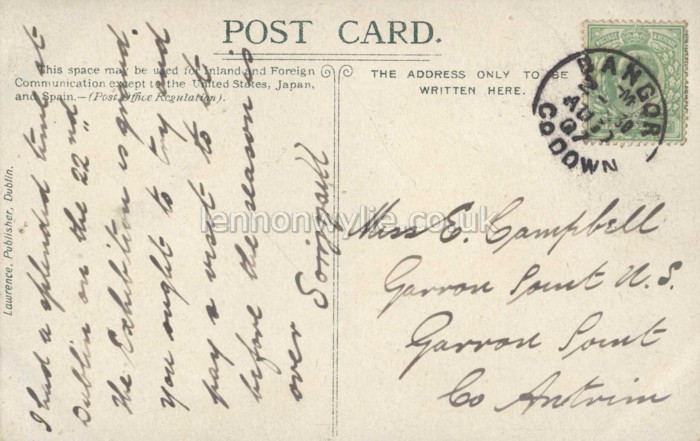 POST CARD.
This space may be used for Inland and Foreign
Communication except to the United States, Japan,
and Spain.—(Post Office Regulation).
THE ADDRESS ONLY TO BE
WRITTEN HERE.
BANGOR
AU
07
CO DOWN
Lawrence, Publisher, Dublin.
I had a splendid time at
Dublin on the 22nd
the Exhibition is grand.
you ought to try and
pay a visit to it
before the season is
over
Miss E. Campbell
Garron Point N. S.
Garron Point
Co Antrim
lennonwylie.co.uk